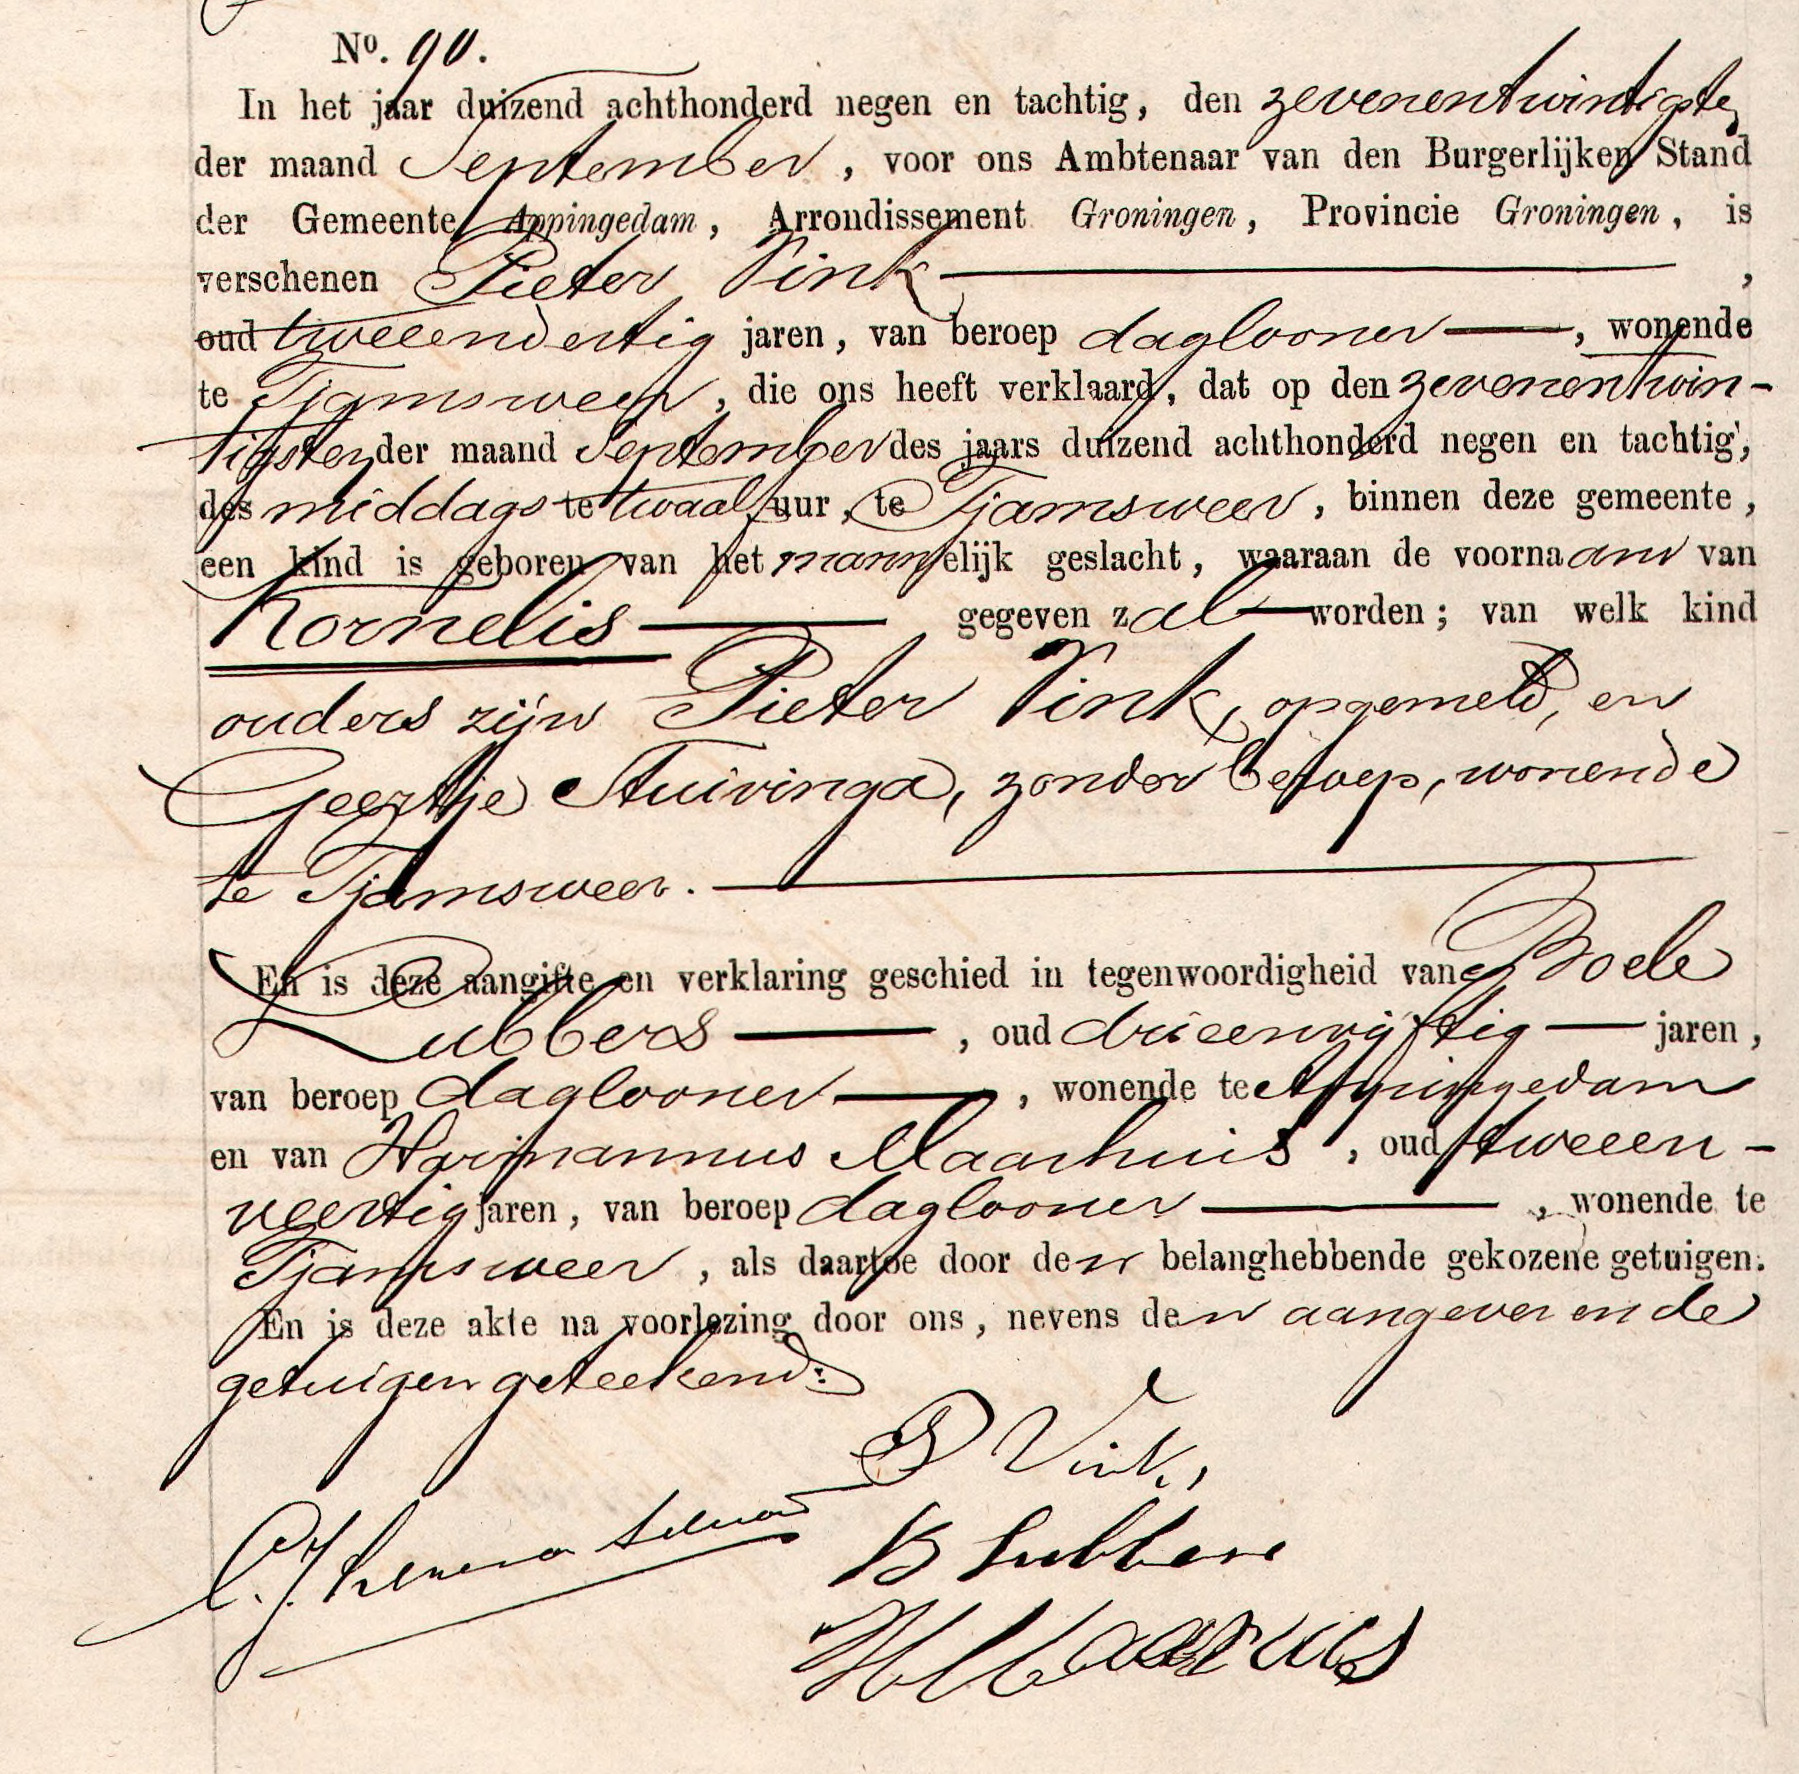 No. 90.
In het jaar duizend achthonderd negen en tachtig, den zevenentwintigsten
der maand September, voor ons Ambtenaar van den Burgerlijken Stand
der Gemeente Appingedam, Arrondissement Groningen, Provincie Groningen, is
verschenen Pieter Vink ,
oud tweeendertig jaren, van beroep daglooner, wonende
te Tjamsweer, die ons heeft verklaard, dat op den zevenentwin-
tigsten der maand September des jaars duizend achthonderd negen en tachtig,
des middags te twaalf uur, te Tjamsweer, binnen deze gemeente,
een kind is geboren van het mannelijk geslacht, waaraan de voornaam van
Kornelis gegeven zal worden; van welk kind
ouders zijn Pieter Vink, opgemeld, en
Geertje Stuivinga, zonder beroep, wonende
te Tjamsweer.
En is deze aangifte en verklaring geschied in tegenwoordigheid van Boele
Lubbers, oud drieenvijftig jaren,
van beroep daglooner, wonende te Appingedam
en van Harmannus Maarhuis, oud tweeen-
veertig jaren, van beroep daglooner, wonende te
Tjamsweer, als daartoe door den belanghebbende gekozene getuigen.
En is deze akte na voorlezing door ons, nevens den aangever en de
getuigen geteekend:
P Vink,
B Lubbers